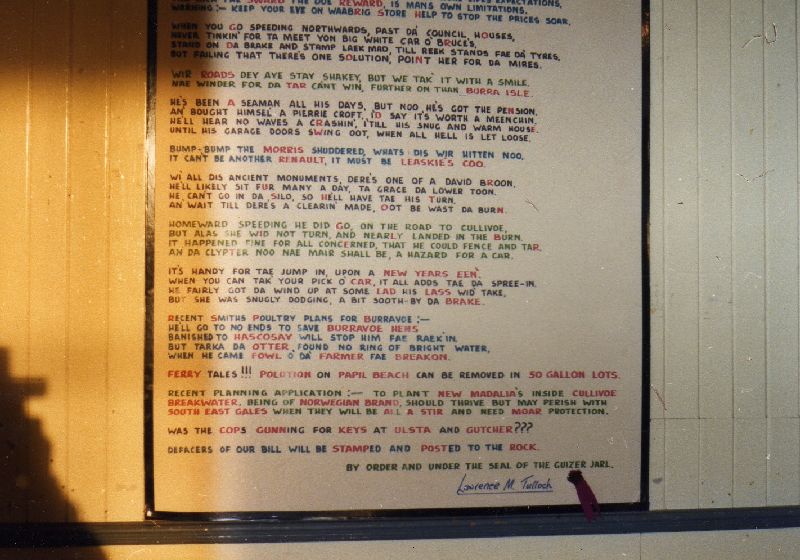 THE SWARD THE DUE REWARD, IS MANS OWN LIMITATIONS.
WARNING:- KEEP YOUR EYE ON WAABRIG STORE HELP TO STOP THE PRICES SOAR.
WHEN YOU GO SPEEDING NORTHWARDS, PAST DA' COUNCIL HOUSES,
NEVER TINKIN' FOR TA MEET YON BIG WHITE CAR O' BRUCE'S,
STAND ON DA BRAKE AND STAMP LAEK MAD, TILL REEK STANDS FAE DA' TYRES,
BUT FAILING THAT THERE'S ONE SOLUTION, POINT HER FOR DA MIRES.
WIR ROADS DEY AYE STAY SHAKEY, BUT WE TAK' IT WITH A SMILE.
NAE WINDER FOR DA TAR CAN'T WIN, FURTHER ON THAN BURRA ISLE.
HE'S BEEN A SEAMAN ALL HIS DAYS, BUT NOO HE'S GOT THE PENSION,
AN' BOUGHT HIMSEL' A PIERRIE CROFT, I'D SAY IT'S WORTH A MEENCHIN.
HE'LL HEAR NO WAVES A CRASHIN', I'TILL HIS SNUG AND WARM HOUSE.
UNTIL HIS GARAGE DOORS SWING OOT, WHEN ALL HELL IS LET LOOSE.
BUMP-BUMP THE MORRIS SHUDDERED, WHATS DIS WIR HITTEN NOO,
IT CAN'T BE ANOTHER RENAULT, IT MUST BE LEASKIE'S COO.
WI' ALL DIS ANCIENT MONUMENTS, DERE'S ONE OF A DAVID BROON,
HE'LL LIKELY SIT FUR MANY A DAY, TA GRACE DA LOWER TOON.
HE, CAN'T GO IN DA SILO, SO HE'LL HAVE TAE HIS TURN.
AN' WAIT TILL DERE'S A CLEARIN' MADE, OOT BE WAST DA BURN.
HOMEWARD SPEEDING HE DID GO, ON THE ROAD TO CULLIVOE,
BUT ALAS SHE WID NOT TURN, AND NEARLY LANDED IN THE BURN.
IT HAPPENED FINE FOR ALL CONCERNED, THAT HE COULD FENCE AND TAR,
AN DA CLYPTER NOO NAE MAIR SHALL BE, A HAZARD FOR A CAR.
IT'S HANDY FOR TAE JUMP IN, UPON A NEW YEARS EEN.
WHEN YOU CAN TAK YOUR PICK O' CAR, IT ALL ADDS TAE DA SPREE-IN.
HE FAIRLY GOT DA WIND UP AT SOME LAD HIS LASS WID TAKE,
BUT SHE WAS SNUGLY DODGING, A BIT SOOTH-BY DA BRAKE.
RECENT SMITHS POULTRY PLANS FOR BURRAVOE :-
HE'LL GO TO NO ENDS TO SAVE BURRAVOE HENS
BANISHED TO HASCOSAY WILL STOP HIM FAE RAEK'IN.
BUT TARKA DA OTTER, FOUND NO RING OF BRIGHT WATER,
WHEN HE CAME FOWL O' DA' FARMER FAE BREAKON.
FERRY TALES!!! POLUTION ON PAPIL BEACH CAN BE REMOVED IN 50 GALLON LOTS.
RECENT PLANNING APPLICATION :- TO PLANT NEW MADALIA'S INSIDE CULLIVOE
BREAKWATER. BEING OF NORWEGIAN BRAND, SHOULD THRIVE BUT MAY PERISH WITH
SOUTH EAST GALES WHEN THEY WILL BE ALL A STIR AND NEED MOAR PROTECTION.
WAS THE COPS GUNNING FOR KEYS AT ULSTA AND GUTCHER???
DEFACERS OF OUR BILL WILL BE STAMPED AND POSTED TO THE ROCK.
BY ORDER AND UNDER THE SEAL OF THE GUIZER JARL.
Lawrence M. Tulloch